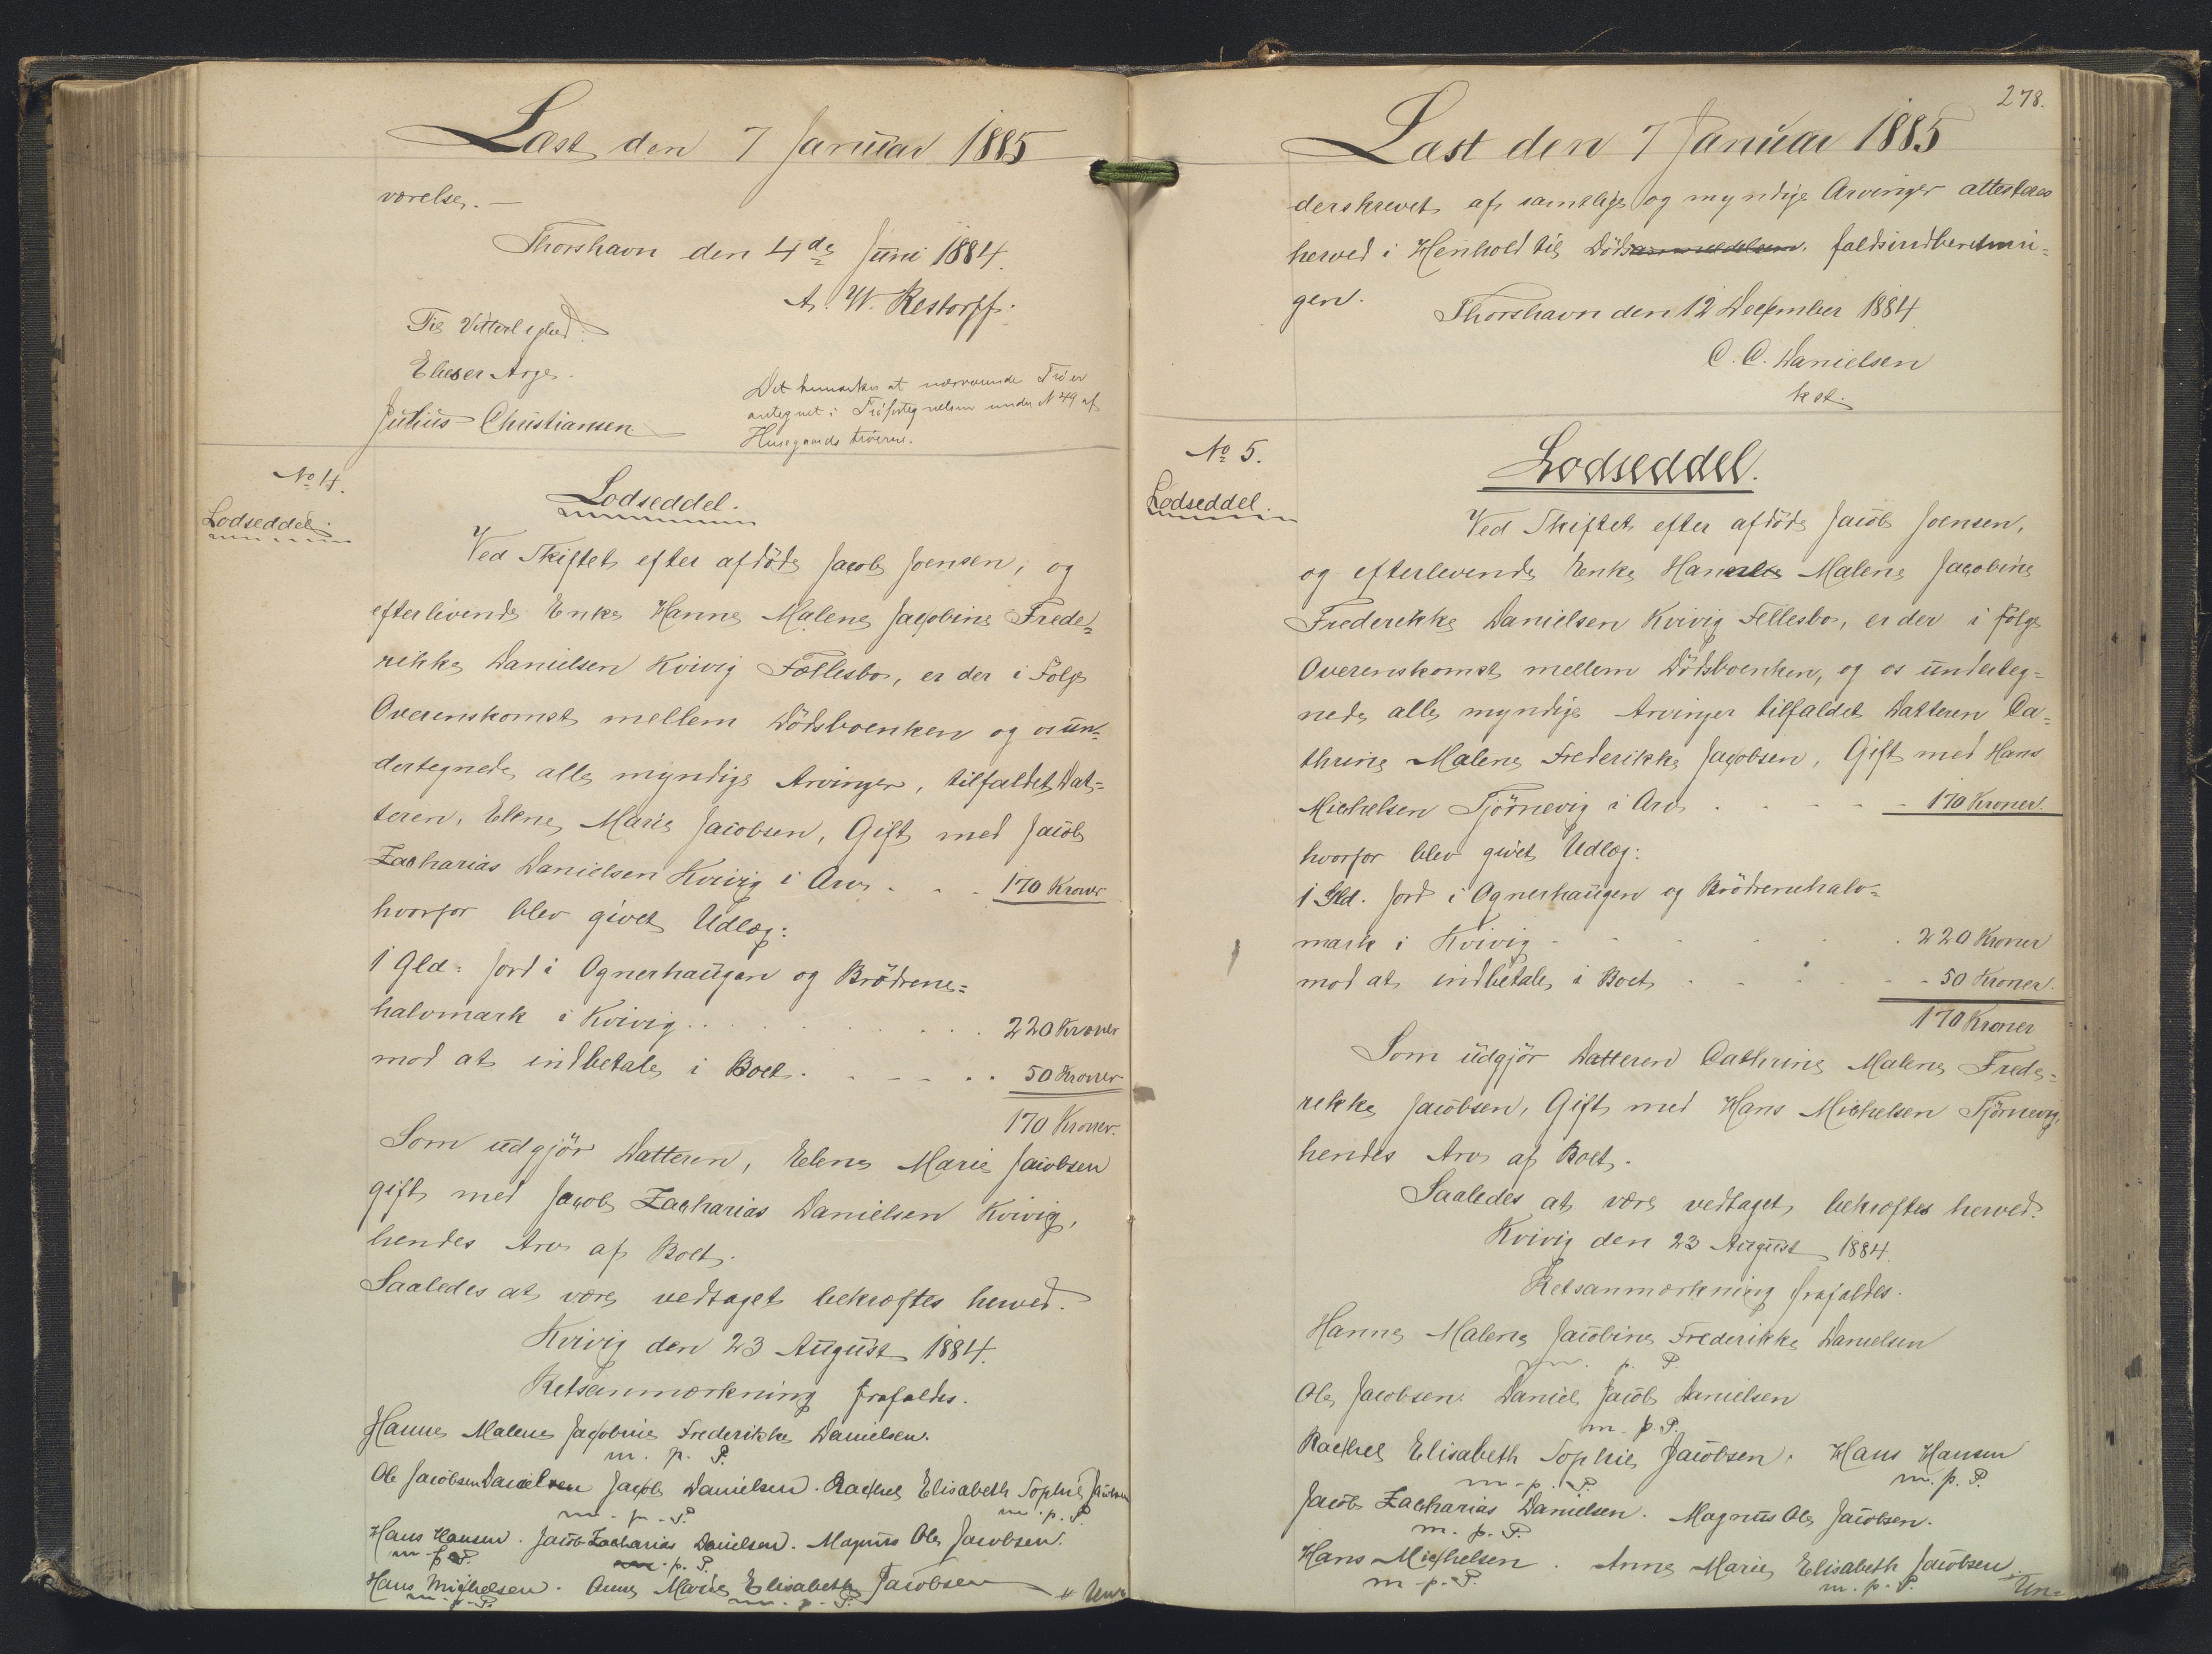 Læst den 7 Januar 1885
værelse. —
Thorshavn den 4de Juni 1884.
A. W. Restorff.
Til Vitterlighed.
Elieser Arge.
Julius Christiansen
Det bemærkes at nærværende Trö er
antegnet i Tröfortegnelsen under N 49 af
Husegaards tröerne.
No 4.
Lodseddel.
Lodseddel.
Ved Skiftet efter afdöde Jacob Joensen, og
efterlevende Enke Hanne Malene Jacobine Frede-
rikke Danielsen Kvivig Fællesbo, er der i Fölge
Overenskomst mellem Dödsboenken og os un-
dertegnede alle myndige Arvinger, tilfaldet Dat=
teren, Elene Marie Jacobsen, Gift med Jacob
Zacharias Danielsen Kvivig i Arv . . . 170 Kroner
hvorfor blev givet Udlæg:
1 Gld. Jord i Ognerhaugen og Brödrene=
halvmark i Kvivig . . . 220 Kroner
mod at indbetale i Boet . . . 50 Kroner
170 Kroner.
Som udgjör Datteren, Elene Marie Jacobsen
gift med Jacob Zacharias Danielsen Kvivig,
hendes Arv af Boet.
Saaledes at være vedtaget bekræftes herved.
Kvivig den 23 August 1884.
Retsanmærkning frafaldes.
Hanne Malene Jacobine Frederikke Danielsen.
m. p. P.
Ole Jacobsen Daniel Jacob Danielsen. Rachel Elisabeth Sophie Jacobsen
m. p. P. m. p. P.
Hans Hansen. Jacob Zacharias Danielsen. Magnus Ole Jacobsen.
m. p. P. m. p. P.
Hans Michelsen. Anne Marie Elisabeth Jacobsen
m. p. P. m. p. P.
Un=
278.
Læst den 7 Januar 1885
derskrevet af samtlige og myndige Arvinger attesteres
herved i Henhold til Dödsanmeldelsen. faldsindberetnin=
gen.
Thorshavn den 12 December 1884
C. C. Danielsen
kst.
No 5.
Lodseddel.
Lodseddel.
Ved Skiftet efter afdöde Jacob Joensen,
og efterlevende Enke Hanne Malene Jacobine
Frederikke Danielsen Kvivig Fellesbo, er der i fölge
Overenskomst mellem Dödsboenken, og os underteg=
nede alle myndige Arvinger tilfaldet Datteren Ca=
thrine Malene Frederikke Jacobsen, Gift med Hans
Michelsen Tjörnevig i Arv . . . 170 Kroner.
hvorfor blev givet Udlæg:
1 Gld. Jord i Ognerhaugen og Brödrenehalv=
mark i Kvivig . . . 220 Kroner
mod at indbetale i Boet . . . 50 Kroner.
170 Kroner
Som udgjör Datteren Cathrine Malene Frede=
rikke Jacobsen, Gift med Hans Michelsen Tjörnevig,
hendes Arv af Boet.
Saaledes at være vedtaget bekræftes herved.
Kvivig den 23 August 1884.
Retsanmærkning frafaldes.
Hanne Malene Jacobine Frederikke Danielsen
m. p. P.
Ole Jacobsen. Daniel Jacob Danielsen
m. p. P.
Rachel Elisabeth Sophie Jacobsen. Hans Hansen
m. p. P. m. p. P.
Jacob Zacharias Danielsen. Magnus Ole Jacobsen.
m. p. P.
Hans Michelsen. Anne Marie Elisabeth Jacobsen
m. p. P. m. p. P.
Un=